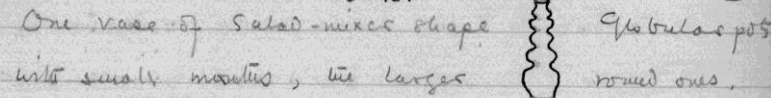 One vase of Salad-mixer shape Globular pots
with small mouths, the larger round ones.